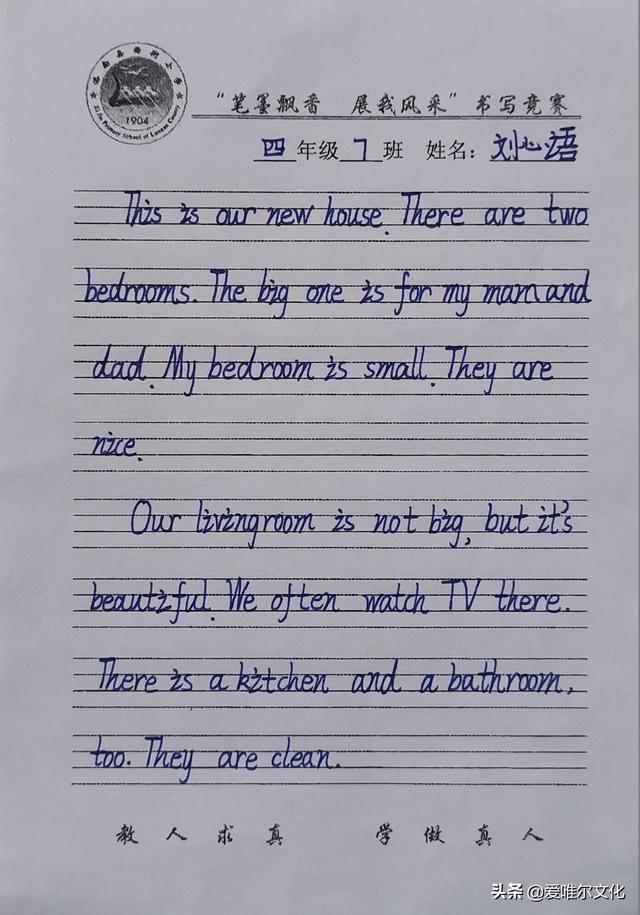 1904
"笔墨飘香 展我风采"书写竞赛
四年级7班 姓名：刘心语
This is our new house. There are two
bedrooms. The big one is for my mam and
dad. My bedroom is small. They are
nice.
Our livingroom is not big, but it's
beautiful. We often watch TV there.
There is a kitchen and a bathroom,
too. They are clean.
教人求真 学做真人
头条 @爱唯尔文化